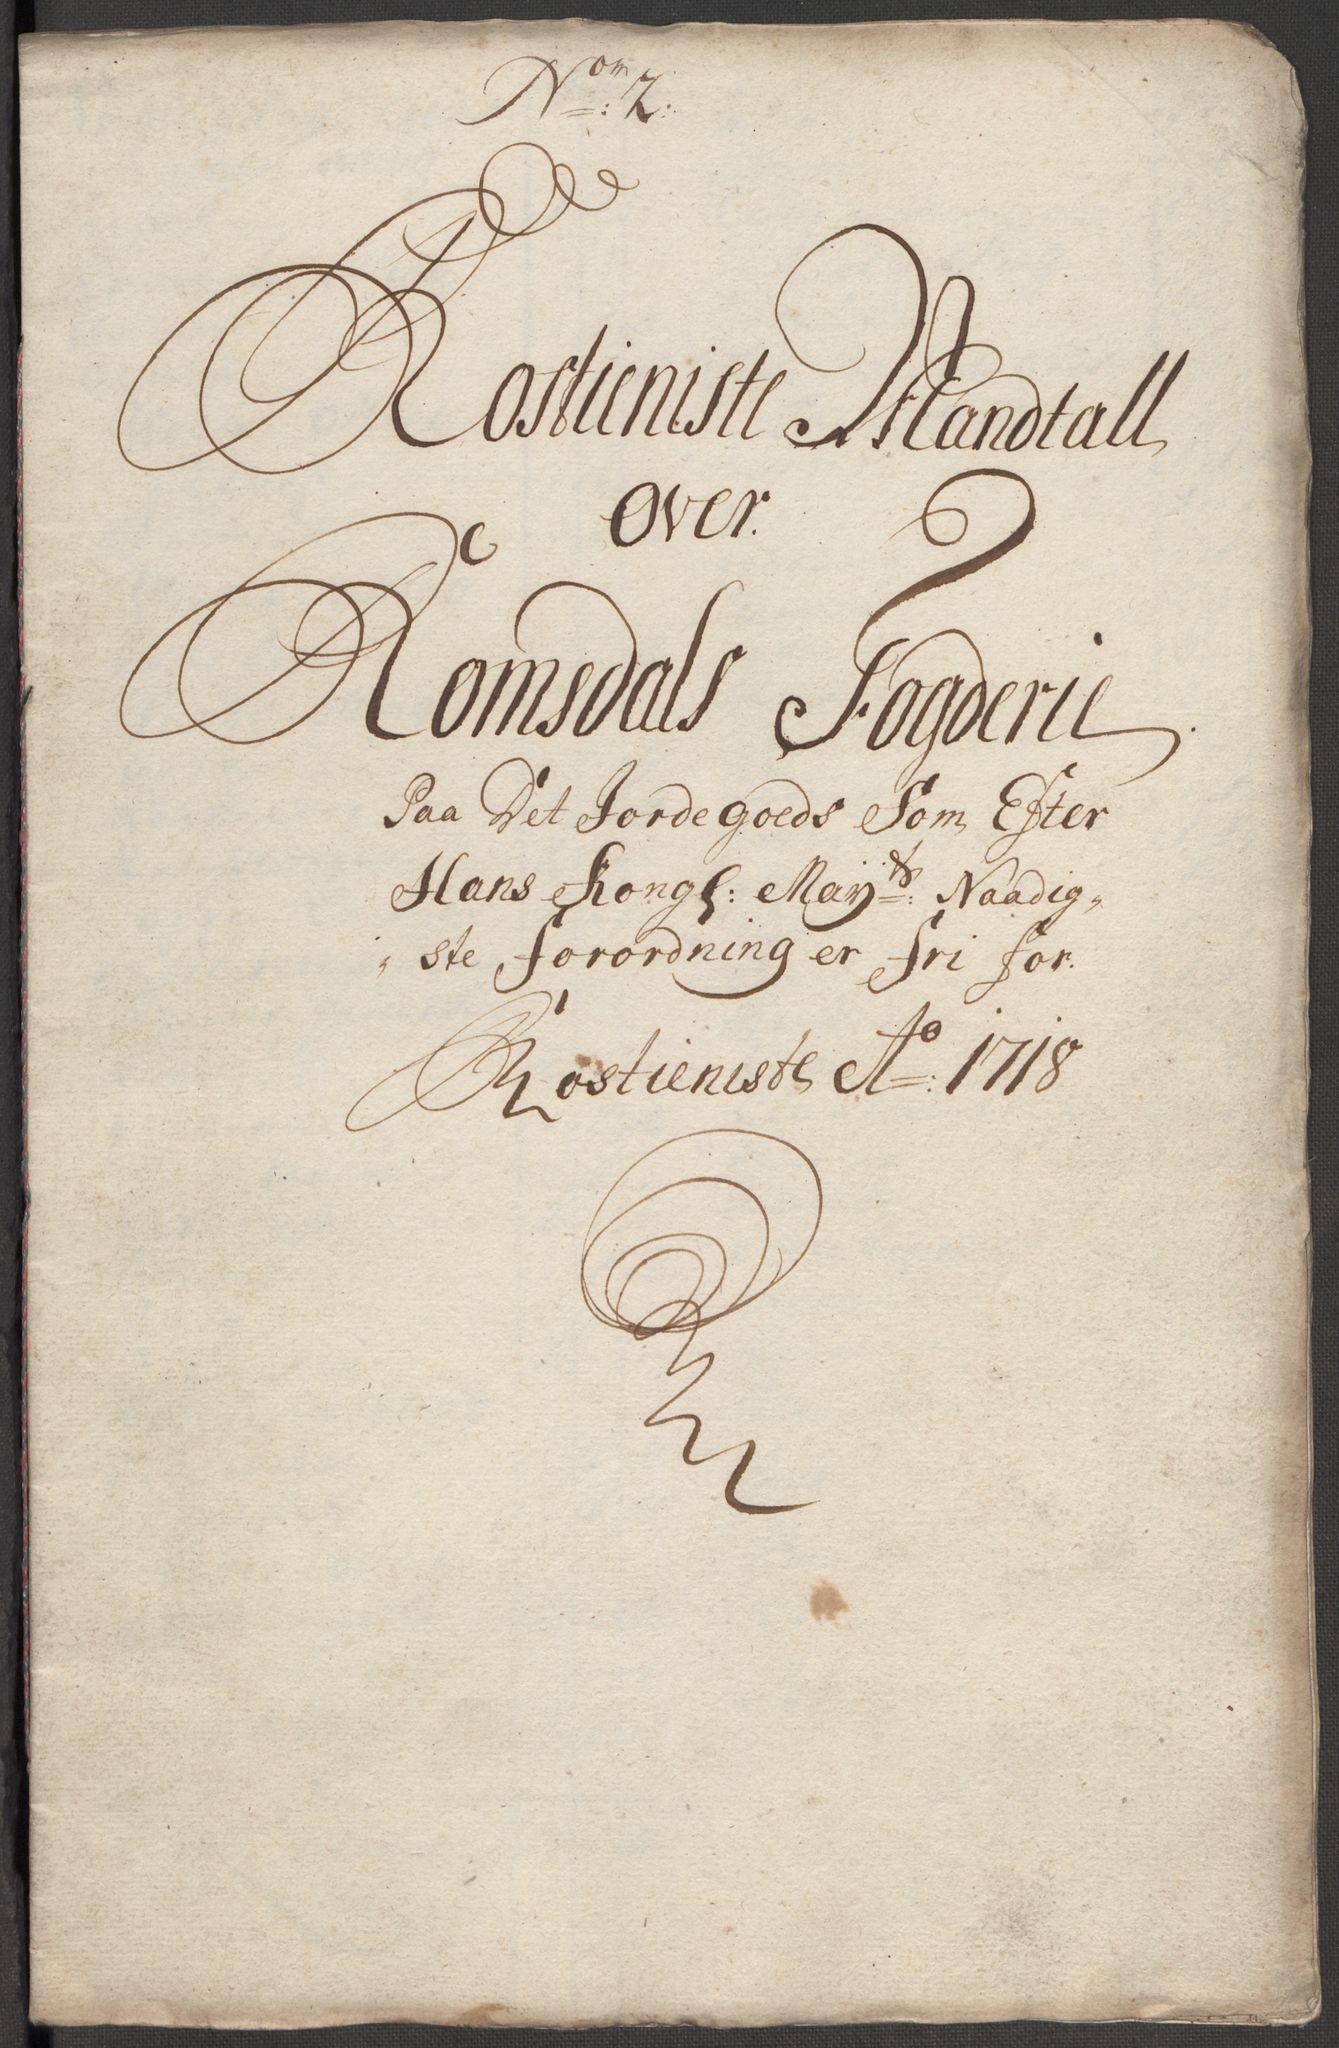 Nom: 2:
Rostieniste Mandtall
over
Romsdals Fogderie
Paa Det Jordegoeds Som Efter
Hans Kongl: Mayts: Naadig„
„ste forordning er fri for
Rostieniste Ao: 1718